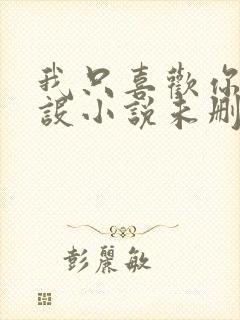 我只喜歡你
設小說未刪
彭麗敏